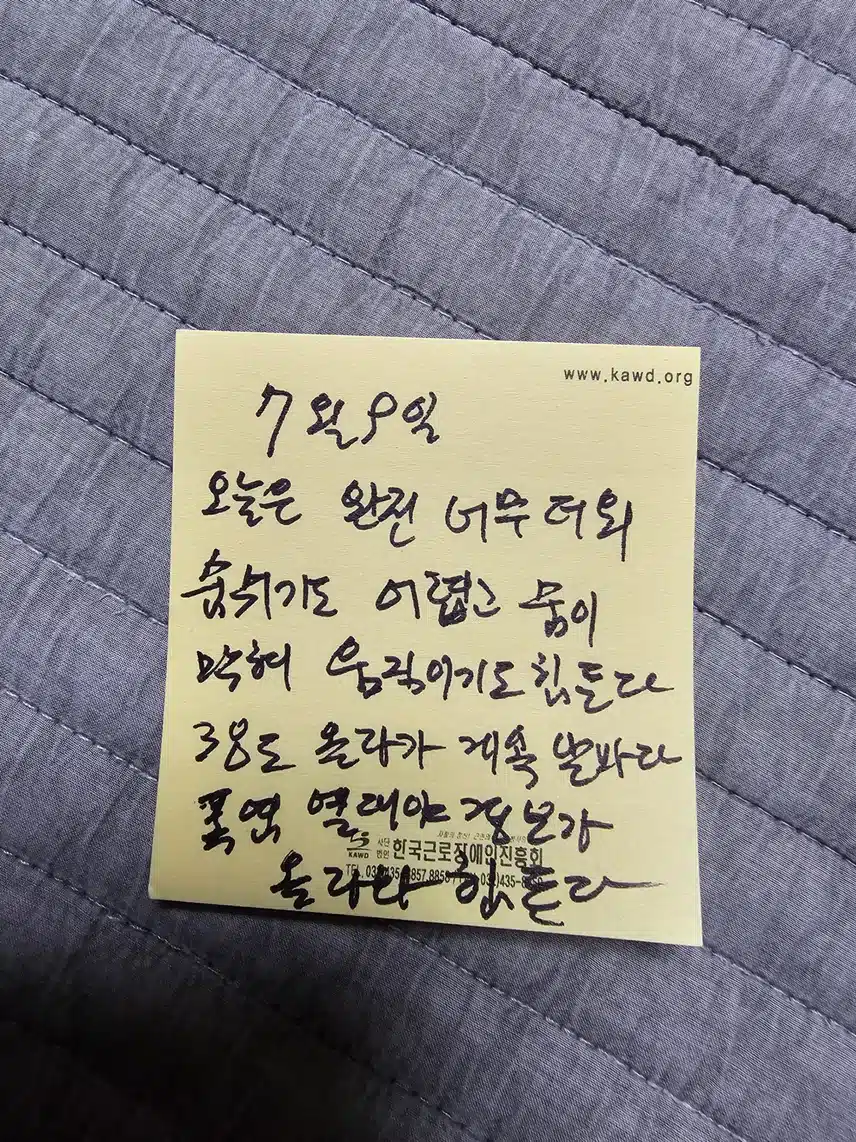 www.kawd.org
7월 9일
오늘은 완전 너무 더워
숨쉬기도 어렵고 숨이
막혀 움직이기도 힘든다
38도 올라가 계속 불바다
폭염 열대야 경보가
사단법인 한국근로장애인진흥회
KAWD
올라와 힘든다